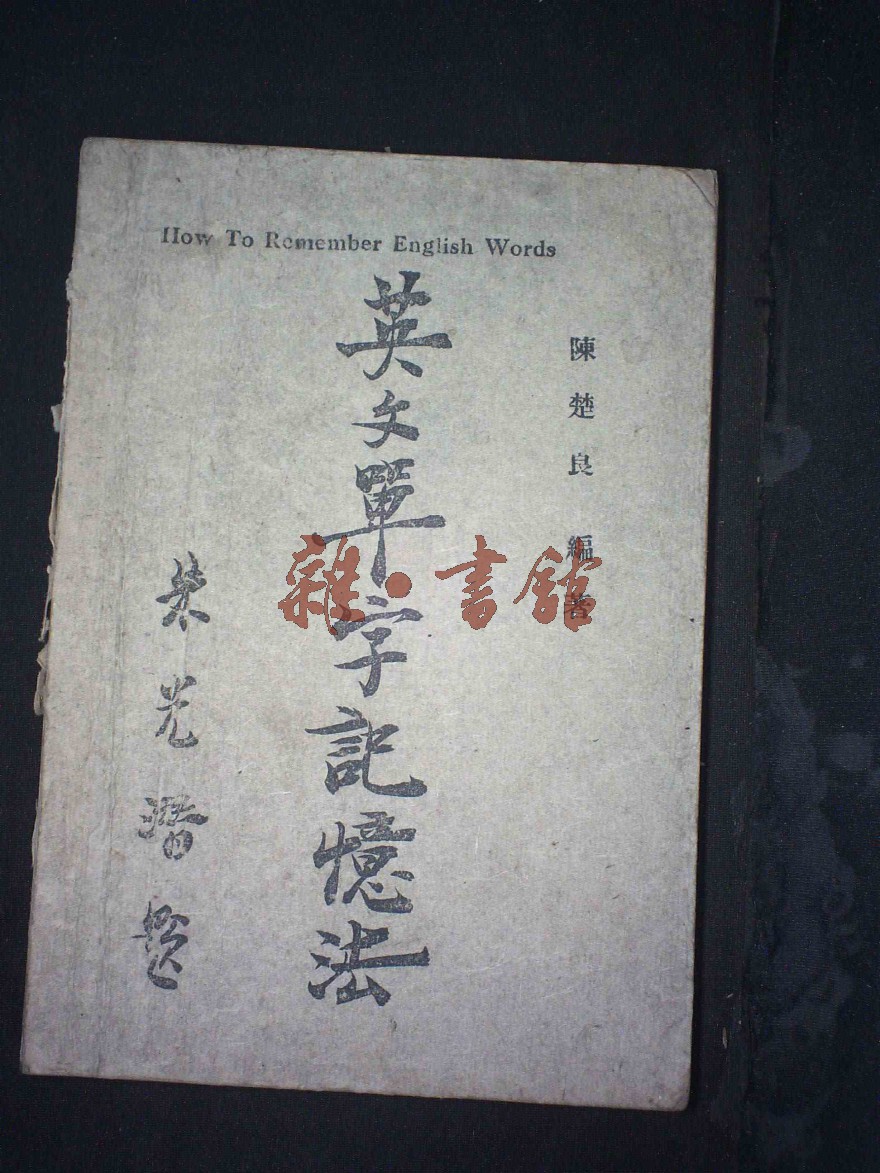 How To Remember English Words
陳楚良編著
英文單字記憶法
朱光潛題
雜·書館